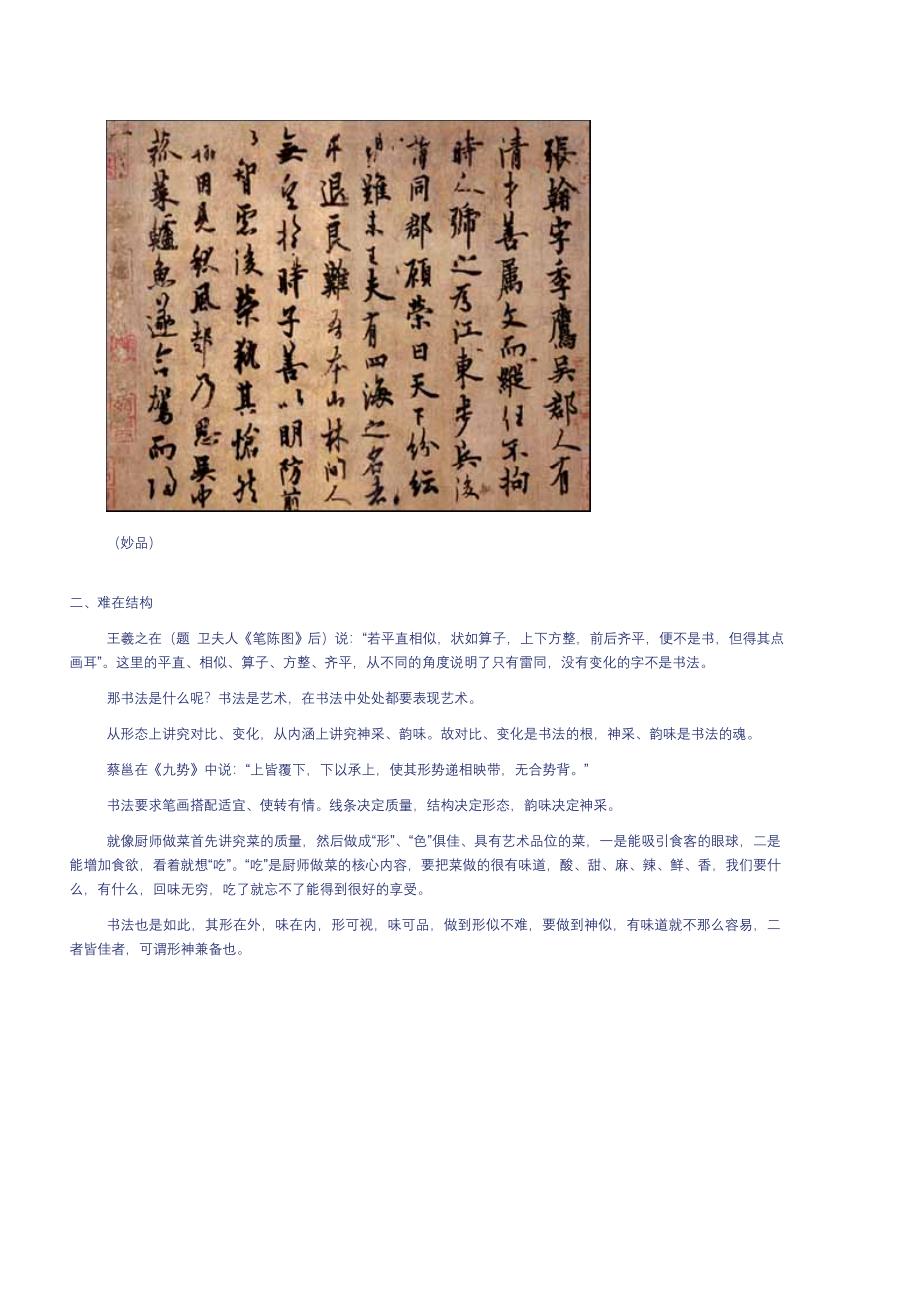 張翰字季鷹吳郡人有
清才善属文而縱任不拘
時人號之為江東步兵後
謂同郡顧榮曰天下紛紜
難未已夫有四海之名者
求退良難吾本山林間人
無望於時子善以明防前
智慮後榮執其愴然
翰因見秋風起乃思吳中
菰菜鱸魚遂命駕而歸
（妙品）
二、难在结构
王羲之在（题 卫夫人《笔陈图》后）说：“若平直相似，状如算子，上下方整，前后齐平，便不是书，但得其点
画耳”。这里的平直、相似、算子、方整、齐平，从不同的角度说明了只有雷同，没有变化的字不是书法。
那书法是什么呢？书法是艺术，在书法中处处都要表现艺术。
从形态上讲究对比、变化，从内涵上讲究神采、韵味。故对比、变化是书法的根，神采、韵味是书法的魂。
蔡邕在《九势》中说：“上皆覆下，下以承上，使其形势递相映带，无合势背。”
书法要求笔画搭配适宜、使转有情。线条决定质量，结构决定形态，韵味决定神采。
就像厨师做菜首先讲究菜的质量，然后做成“形”、“色”俱佳、具有艺术品位的菜，一是能吸引食客的眼球，二是
能增加食欲，看着就想“吃”。“吃”是厨师做菜的核心内容，要把菜做的很有味道，酸、甜、麻、辣、鲜、香，我们要什
么，有什么，回味无穷，吃了就忘不了能得到很好的享受。
书法也是如此，其形在外，味在内，形可视，味可品，做到形似不难，要做到神似，有味道就不那么容易，二
者皆佳者，可谓形神兼备也。